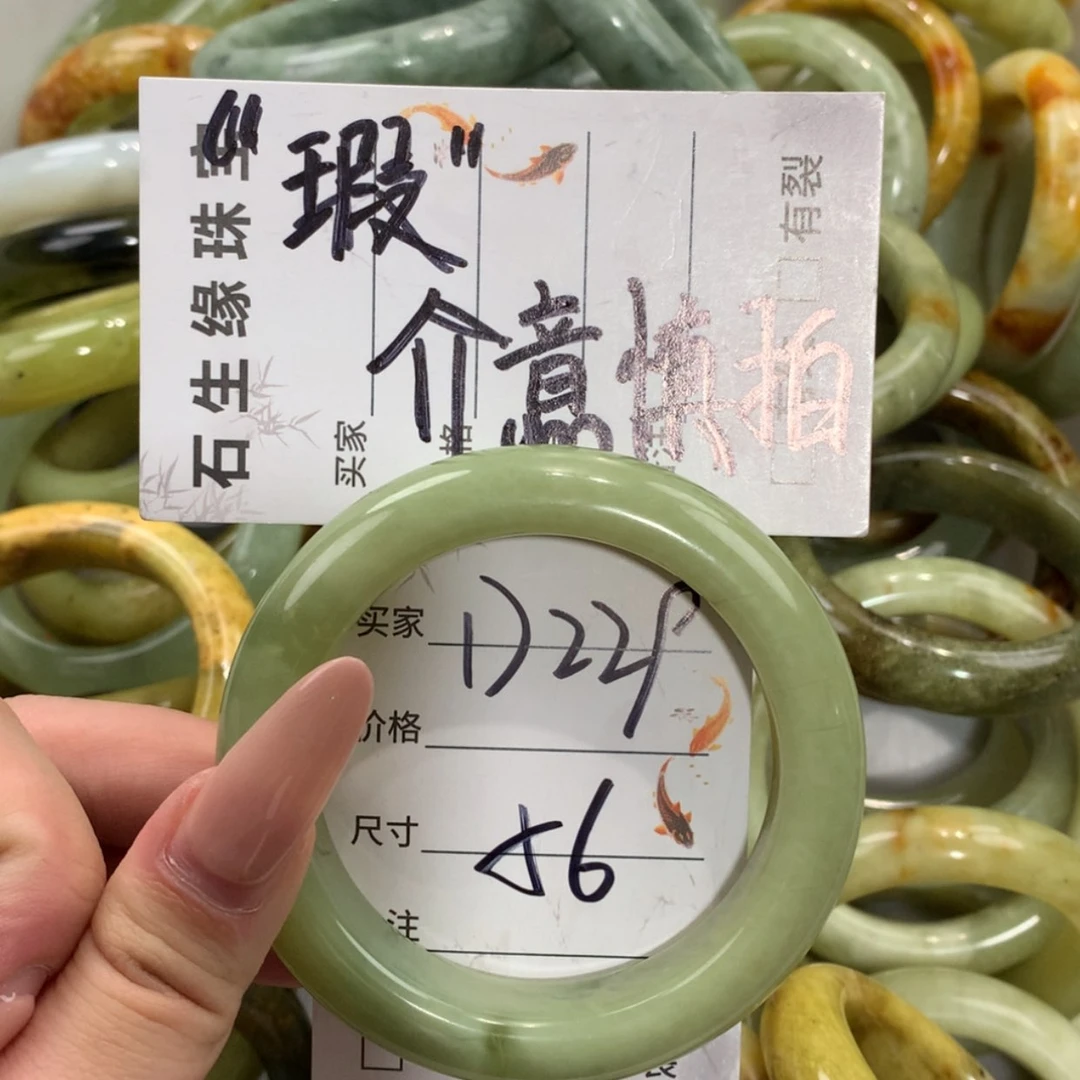 石生缘珠宝
"瑕"
介意慎拍
买家
格
有裂
买家 D22
价格
尺寸 56
注
裂